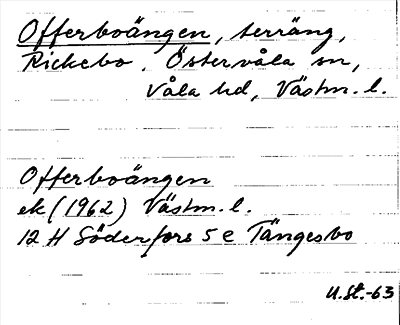 Offerboängen, terräng,
Rickebo. Östervåla sn,
Våla hd, Västm. l.
Offerboängen
ek (1962) Västm. l.
12 H Söderfors 5 e Tängesbo
U.St.-63